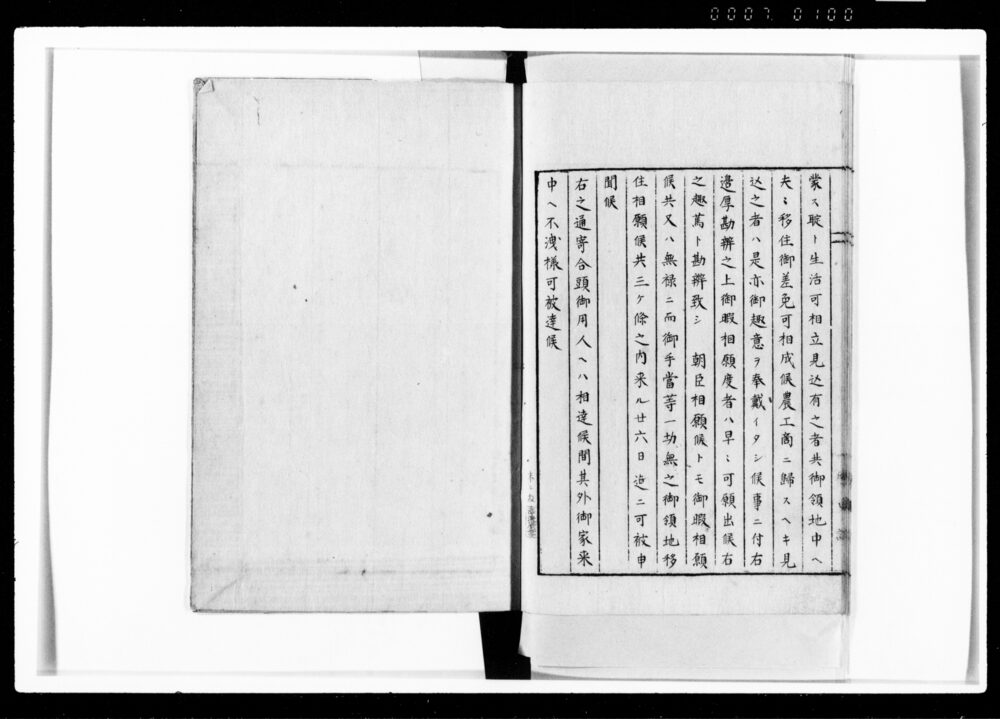 0007 0100
蒙ス聢ト生活可相立見込有之者共御領地中ヘ
夫〻移住御差免可相成候農工商ニ歸スヘキ見
込之者ハ是亦御趣意ヲ奉戴イタシ候事ニ付右
邊厚勘辨之上御暇相願度者ハ早〻可願出候右
之趣篤ト勘辨致シ　朝臣相願候トモ御暇相願
候共又ハ無禄ニ而御手當等一切無之御領地移
住相願候共三ケ條之内来ル廿六日迠ニ可被申
聞候
右之通寄合頭御用人ヘハ相達候間其外御家来
中ヘ不洩様可被達候